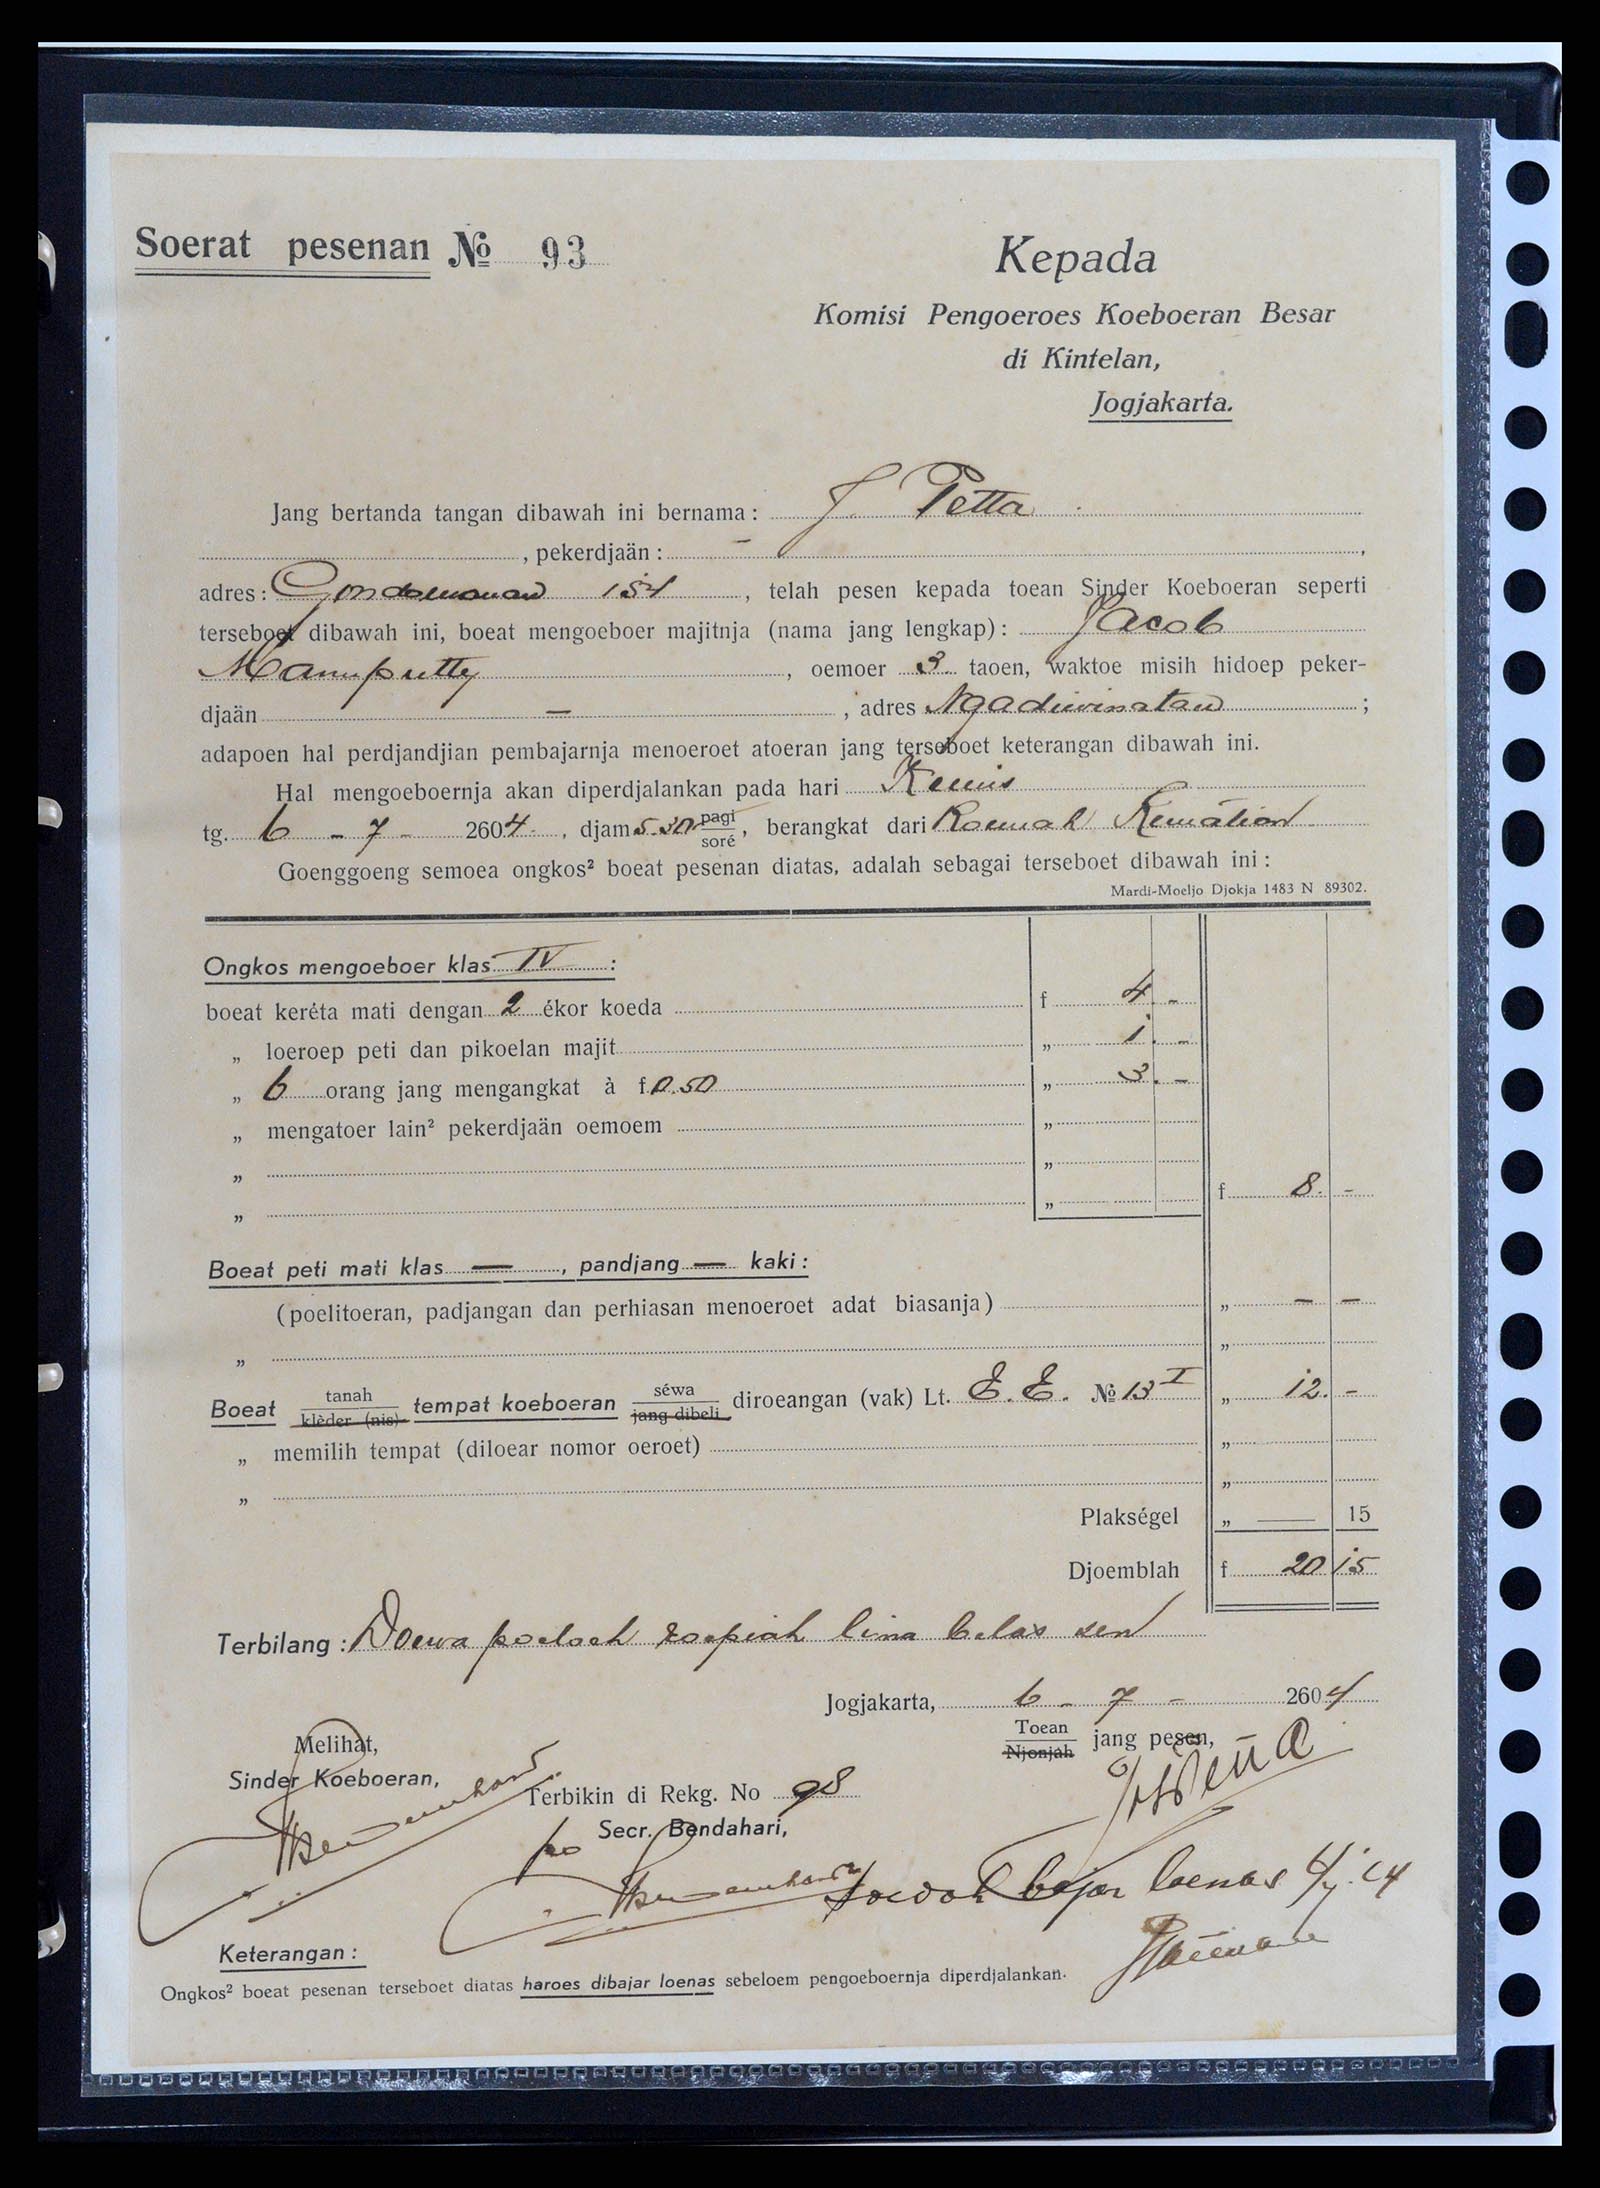 Soerat pesenan № 93
Kepada
Komisi Pengoeroes Koeboeran Besar
di Kintelan,
Jogjakarta.
Jang bertanda tangan dibawah ini bernama: J. Petta
, pekerdjaän: —,
adres: Gondomanan 154, telah pesen kepada toean Sinder Koeboeran seperti
terseboet dibawah ini, boeat mengoeboer majitnja (nama jang lengkap): Jacob
Manuputty, oemoer 3 taoen, waktoe misih hidoep peker-
djaän —, adres Ngadiwinatan;
adapoen hal perdjandjian pembajarnja menoeroet atoeran jang terseboet keterangan dibawah ini.
Hal mengoeboernja akan diperdjalankan pada hari Kemis
tg. 6 - 7 - 2604, djam 5.30 pagi/soré, berangkat dari Roemah Kematian
Goenggoeng semoea ongkos² boeat pesenan diatas, adalah sebagai terseboet dibawah ini:
Mardi-Moeljo Djokja 1483 N 89302.
Ongkos mengoeboer klas IV:
boeat keréta mati dengan 2 ékor koeda f 4. -
„ loeroep peti dan pikoelan majit „ 1. -
„ 6 orang jang mengangkat à f 0.50 „ 3. -
„ mengatoer lain² pekerdjaän oemoem „
„ „
„ „ f 8. -
Boeat peti mati klas —, pandjang — kaki:
(poelitoeran, padjangan dan perhiasan menoeroet adat biasanja) „ — —
„ „
Boeat tanah/klèder (nis) tempat koeboeran séwa/jang dibeli diroeangan (vak) Lt. E.E. № 13 I „ 12. -
„ memilih tempat (diloear nomor oeroet) „
„ „
Plakségel „ — 15
Djoemblah f 20 15
Terbilang: Doewa poeloeh roepiah lima belas sen
Jogjakarta, 6 - 7 - 2604
Toean/Njonjah jang pesen,
Melihat,
Sinder Koeboeran,
Terbikin di Rekg. No 98
Secr. Bendahari,
po
Soedah bajar loenas
Keterangan:
Ongkos² boeat pesenan terseboet diatas haroes dibajar loenas sebeloem pengoeboernja diperdjalankan.